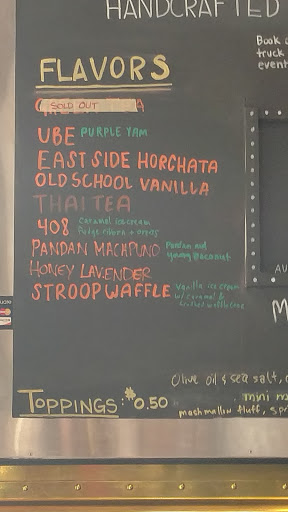 HANDCRAFTED
Book
truck
event
FLAVORS
SOLD OUT
UBE PURPLE YAM
EAST SIDE HORCHATA
OLD SCHOOL VANILLA
THAI TEA
408 Caramel ice cream
Fudge ribbon + oreos
PANDAN MACAPUNO Pandan and
young coconut
HONEY LAVENDER
STROOPWAFFLE Vanilla ice cream
w/ caramel &
AU
M
Olive oil & sea salt,
TOPPINGS: $0.50
mini m
mashmallow fluff, spr